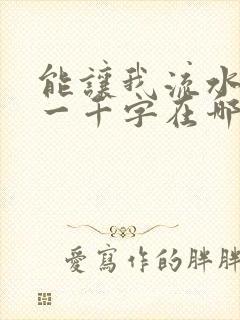 能讓我流水
一千字在哪
愛寫作的胖胖